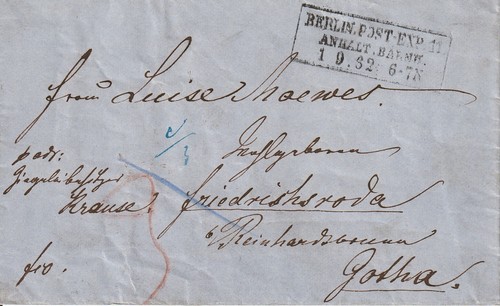 BERLIN, POST-EXP. 11
ANHALT. BAHNH.
1 9. 62 6-7N
Frau Luise Moewes.
Wohlgeboren
p adr:
Ziegeleibesitzer
Krause.
Friedrichsroda
b/ Reinhardsbrunn
Gotha.
fro.